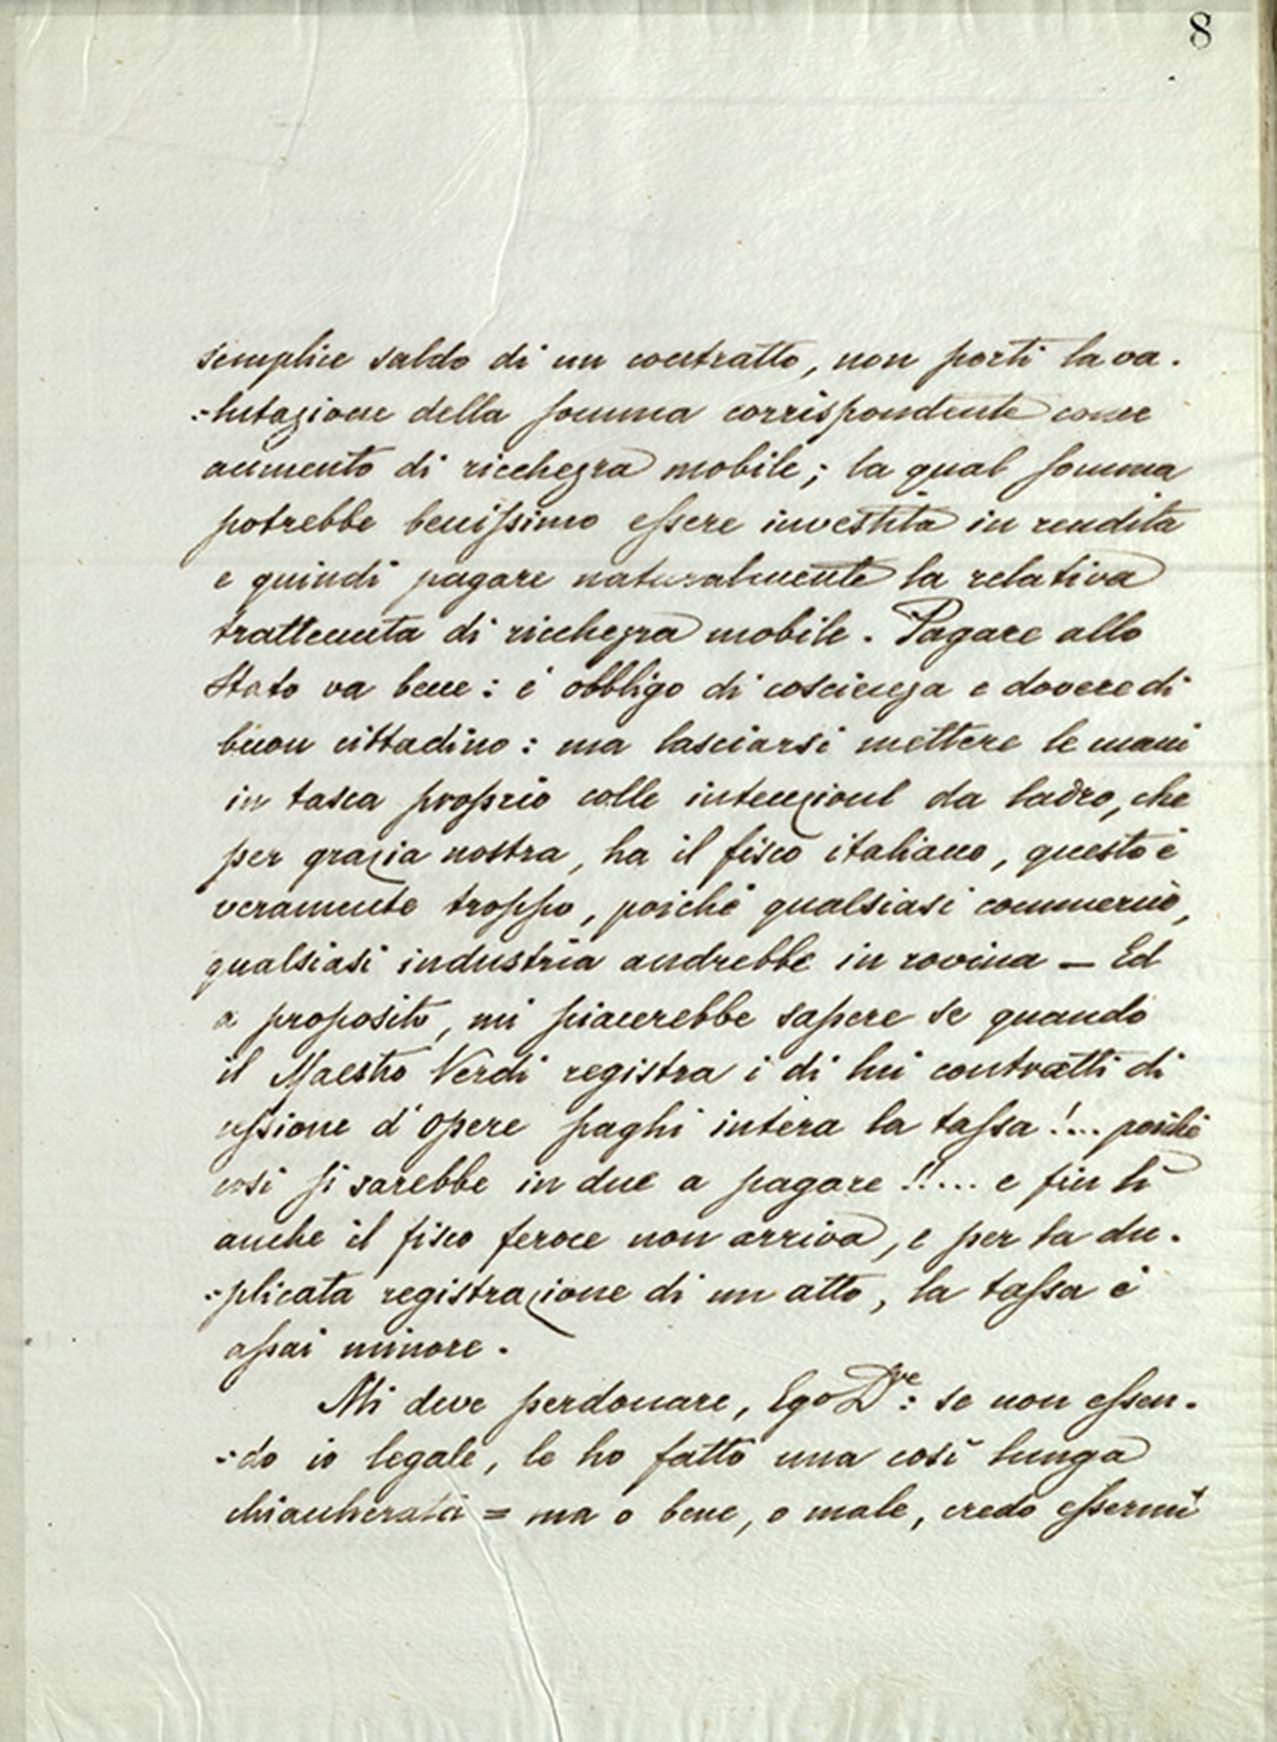 8
semplice saldo di un contratto, non porti la va.
:lutazione della somma corrispondente come
aumento di ricchezza mobile; la qual somma
potrebbe benissimo essere investita in rendita
e quindi pagare naturalmente la relativa
trattenuta di ricchezza mobile. Pagare allo
Stato va bene: è obbligo di coscienza e dovere di
buon cittadino: ma lasciarsi mettere le mani
in tasca proprio colle intenzioni da ladro, che
per grazia nostra, ha il fisco italiano, questo è
veramente troppo, poiché qualsiasi commercio,
qualsiasi industria andrebbe in rovina — Ed
a proposito, mi piacerebbe sapere se quando
il Maestro Verdi registra i di lui contratti di
cessione d'opere paghi intera la tassa!... poiché
così si sarebbe in due a pagare!!.... e fin lì
anche il fisco feroce non arriva, e per la du.
:plicata registrazione di un atto, la tassa è
assai minore.
Mi deve perdonare, Ego Dre: se non essen.
:do io legale, le ho fatto una così lunga
chiaccherata = ma o bene, o male, credo essermi